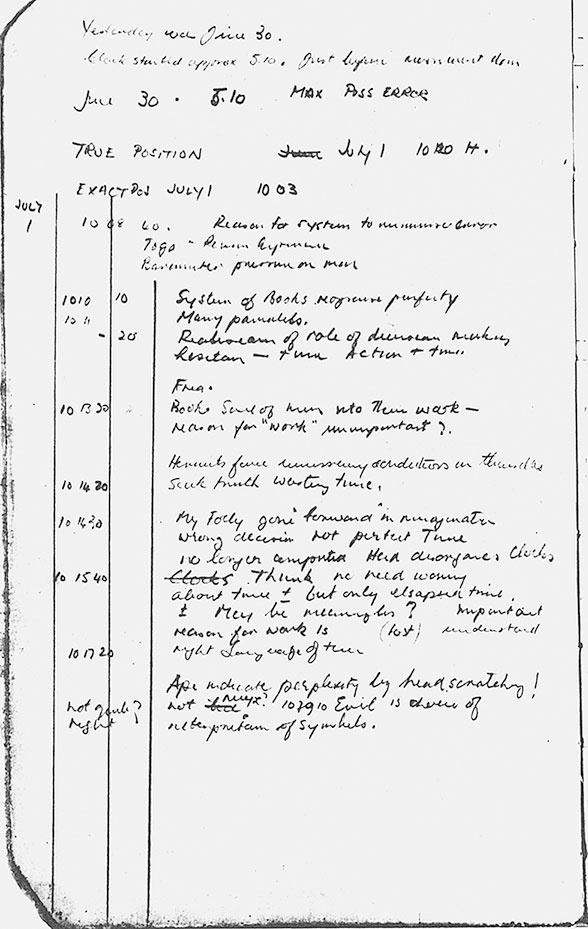 Yesterday was June 30.
Clock started approx 5.10. Just before movement down
June 30 . 5.10 MAX POSS ERROR
TRUE POSITION June July 1 10 20 H.
EXACT POS JULY 1 10 03
JULY
1 10 08 40. Reason for system to minimise error
pressure on man
10 10 10 System of Books responsive perfectly
10 11 Many parallels.
- 20 Realisation of role of decision making
Hesitan — time Action + time.
10 13 30 Books Soul of men into their work —
reason for "work" unimportant ?.
Hermits force unnecessary conditions on themselves
10 14 20 Seek truth wasting time.
10 14 30 My Folly gone forward in imagination
wrong decision not perfect Time
no longer computed Had disorganised Clocks
10 15 40 Clocks. Think no need worry
about time ± but only elapsed time.
± May be meaningless ? Important
reason for work is (lost) understand
10 17 20 right language of time
Ape indicate perplexity by head scratching !
not quite ? not
right Evil is choice of
interpretation of symbols.